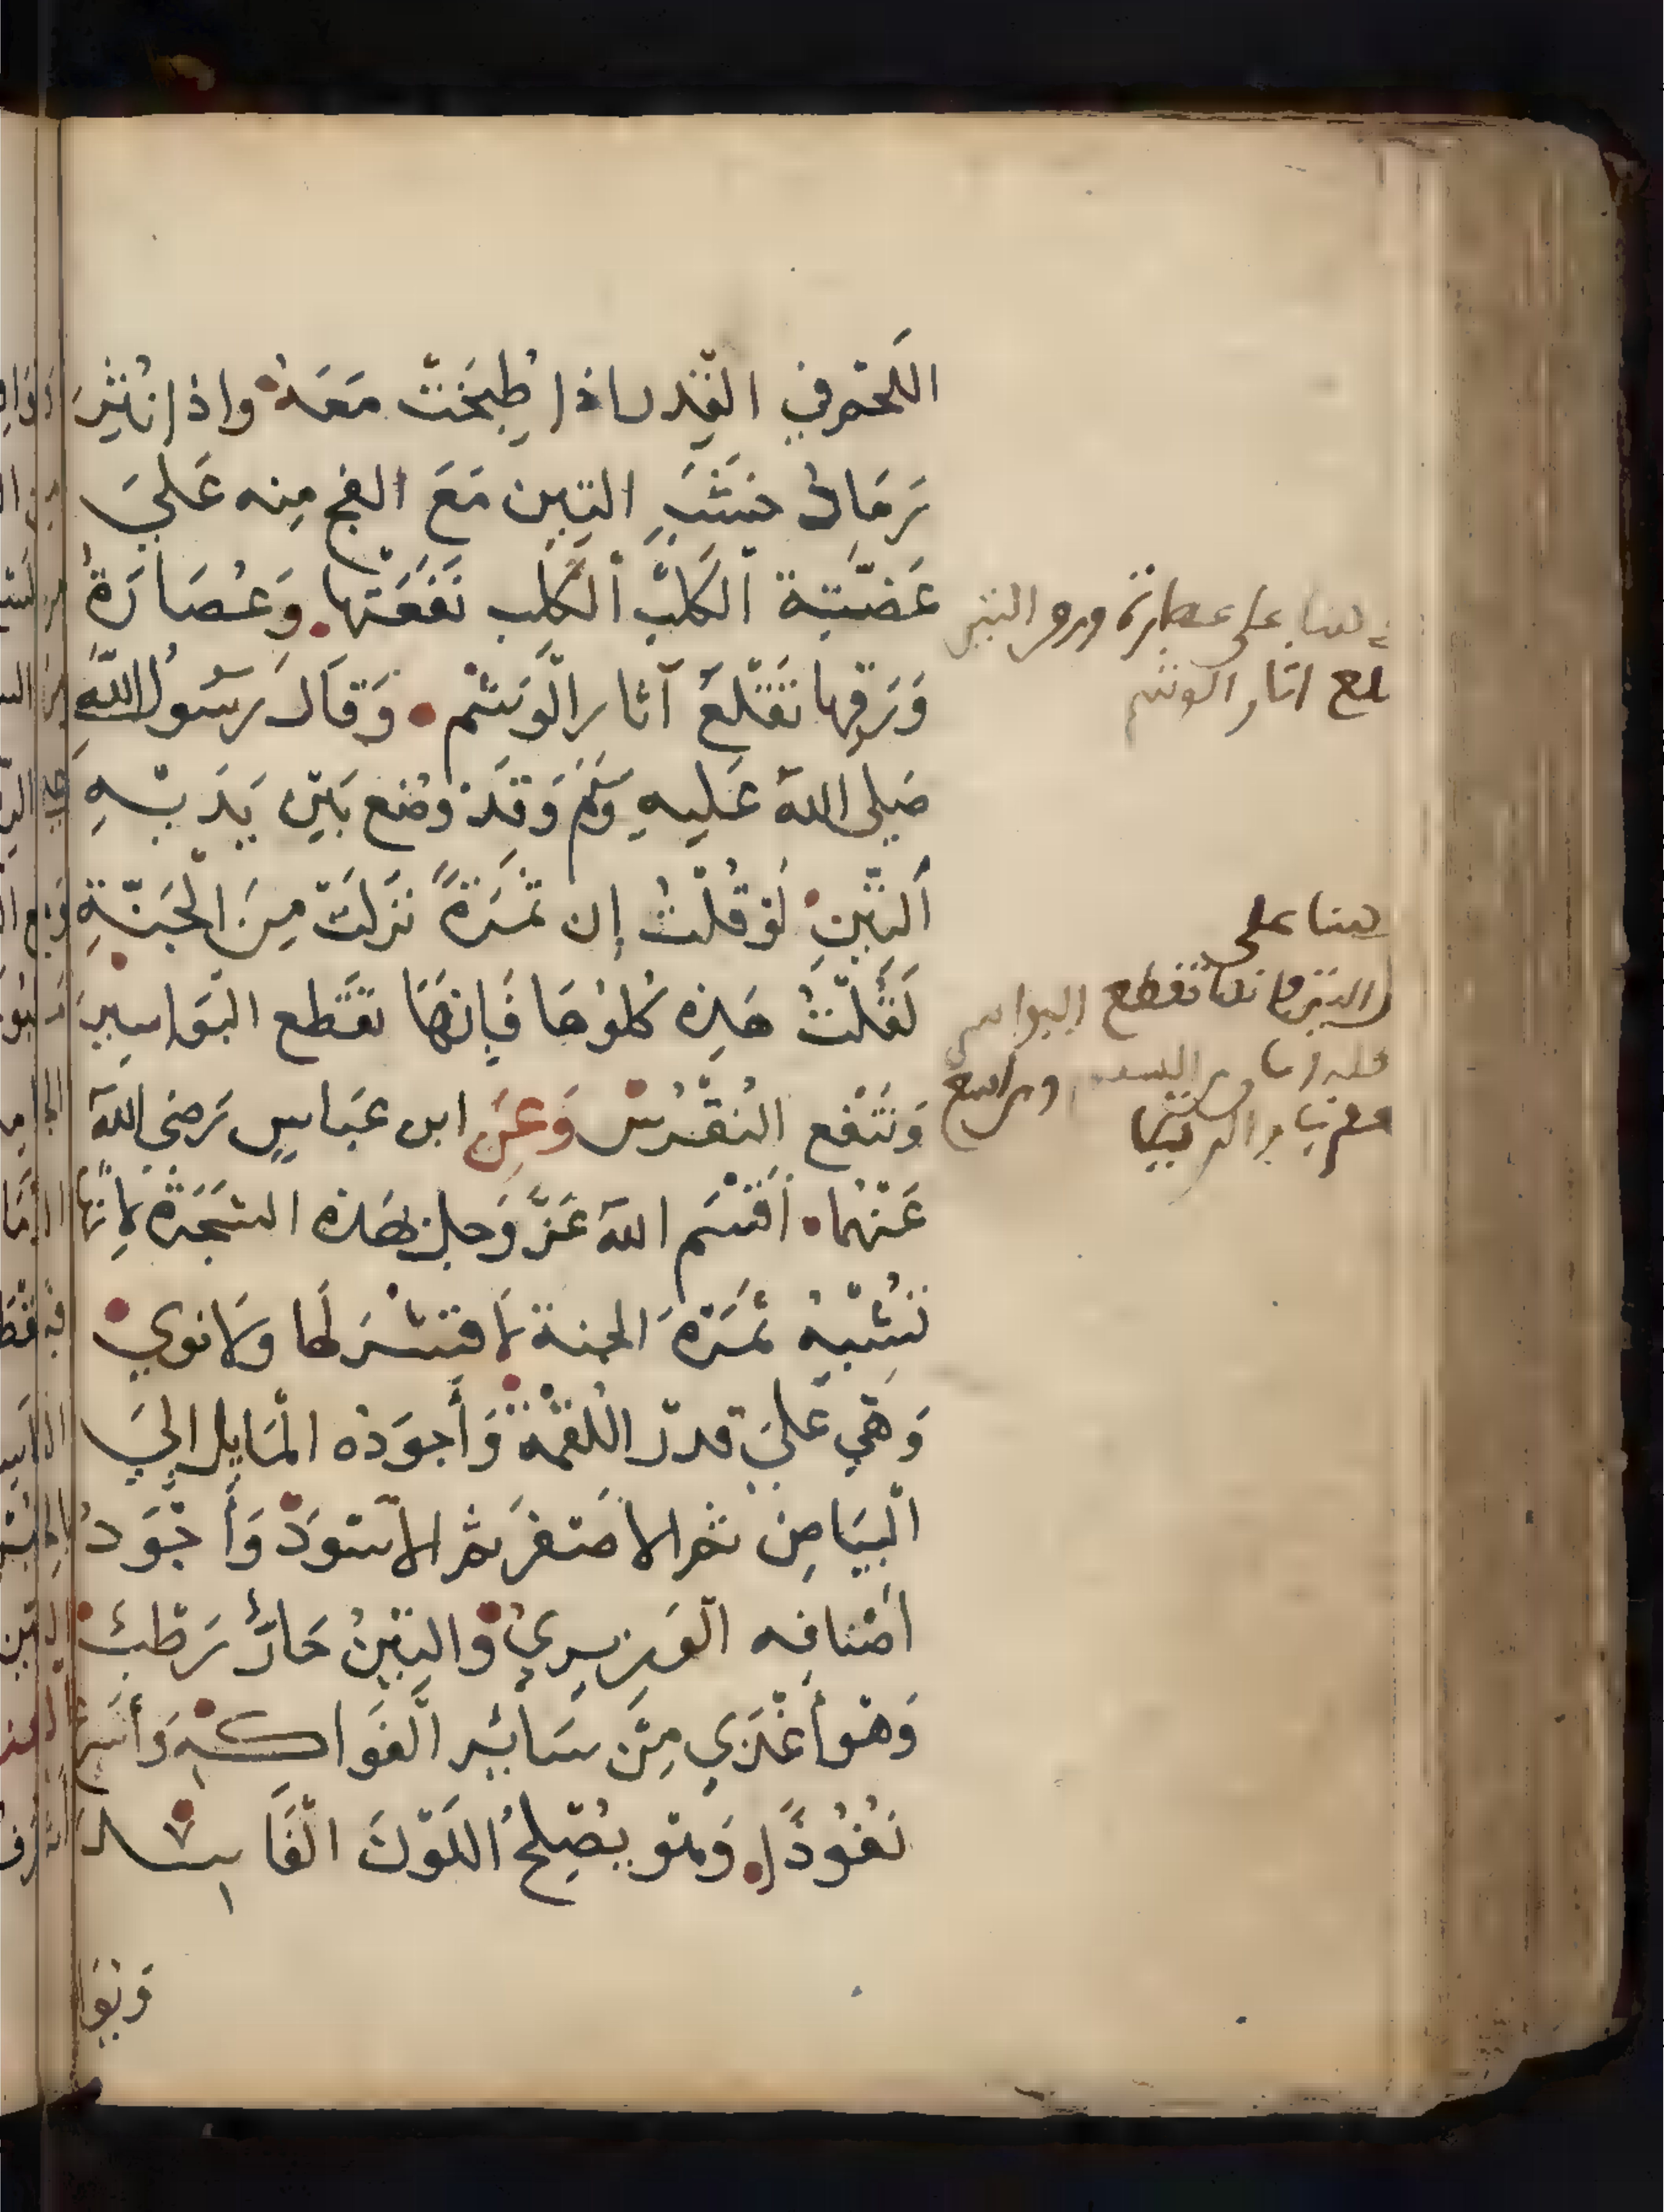 اللحم في القدر اذا طبخت معه واذا نثر
رماد خشب التين مع الفج منه على
عضة الكلب الكلب نفعتها وعصارة
ورقها تقلع آثار الوشم وقال رسول الله
صلى الله عليه وسلم وقد وضع بين يديه
التين لو قلت إن ثمرة نزلت من الجنة
لقلت هذه كلوها فإنها تقطع البواسير
وتنفع النقرس وعن ابن عباس رضى الله
عنهما اقسم الله عز وجل بهذه الشجرة لانها
تشبه ثمرة الجنة لا قشر لها ولا نوي
وهي علي قدر اللقمة وأجوده المايل الي
البياض ثم الاصفر ثم الاسود وأجود
اصنافه الوزيري والتين حار رطب
وهو أغذي من ساير الفواكه وأسرع
نفوذا وهو يصلح اللون الفاسد
هنا على عصارة ورق التين
تقلع اثار الوشم
هنا على
التين فانها تقطع البواسير